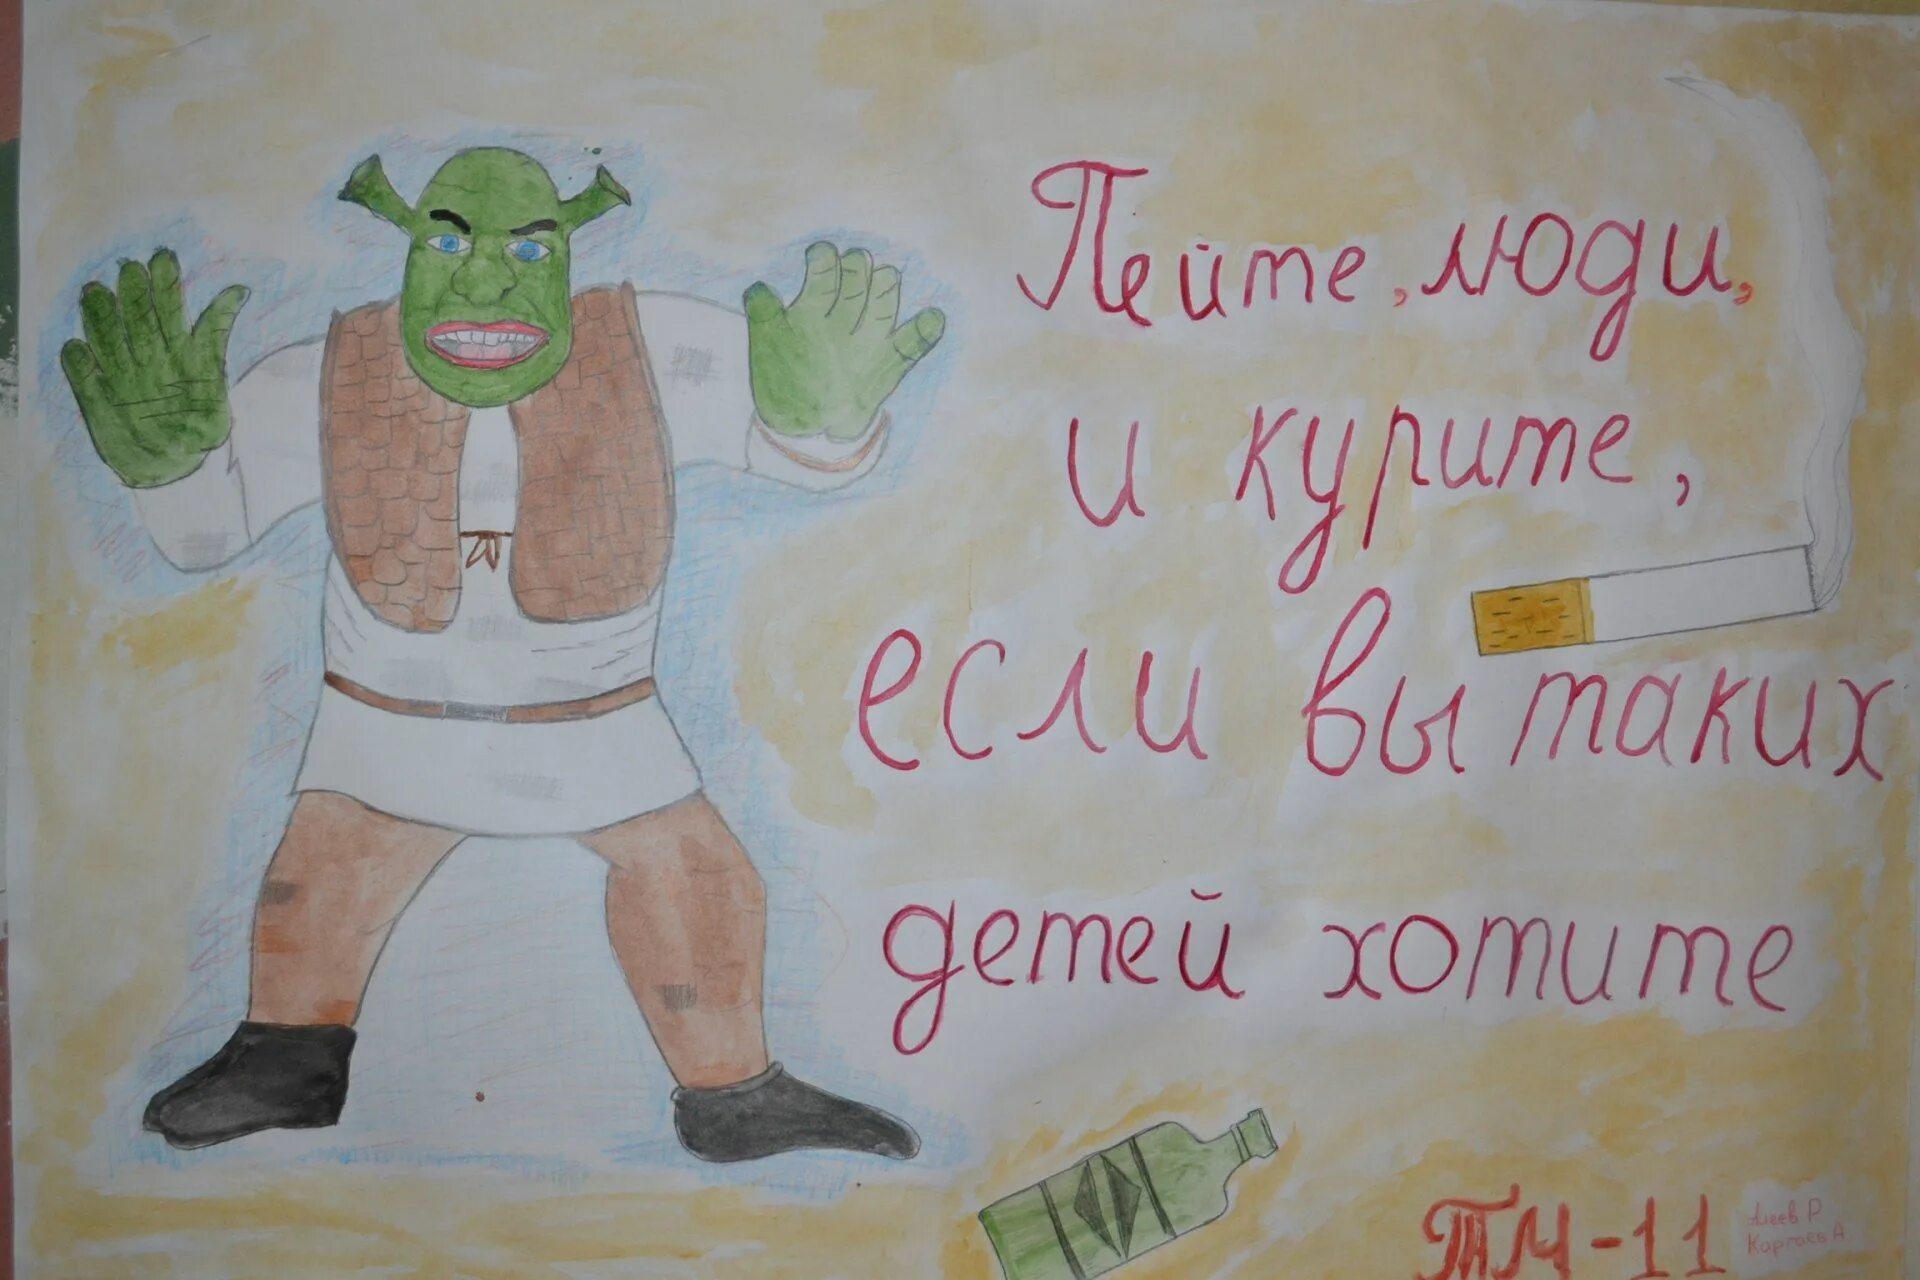 Пейте, люди,
и курите,
если вы таких
детей хотите
ТМ-11
Алеев Р